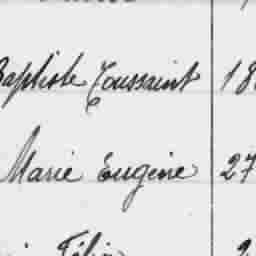 Baptiste Toussaint 18
Marie Eugine 27
Félix